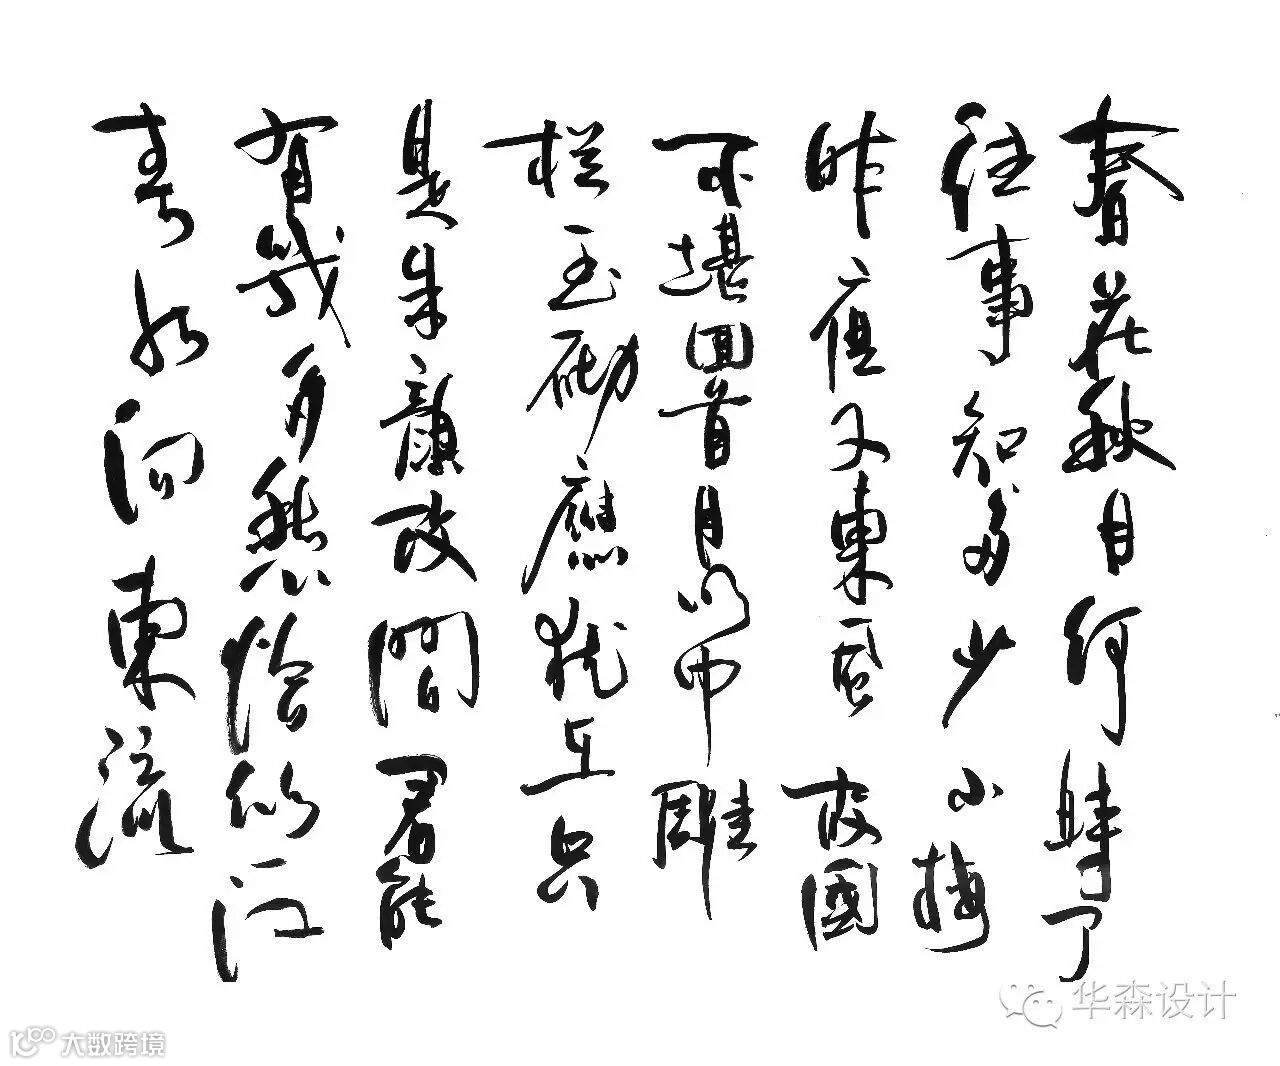 春花秋月何時了
往事知多少小樓
昨夜又東風故國
不堪回首月明中雕
栏玉砌應猶在只
是朱顏改問君能
有幾多愁恰似江
春水向東流
华森设计
大数跨境